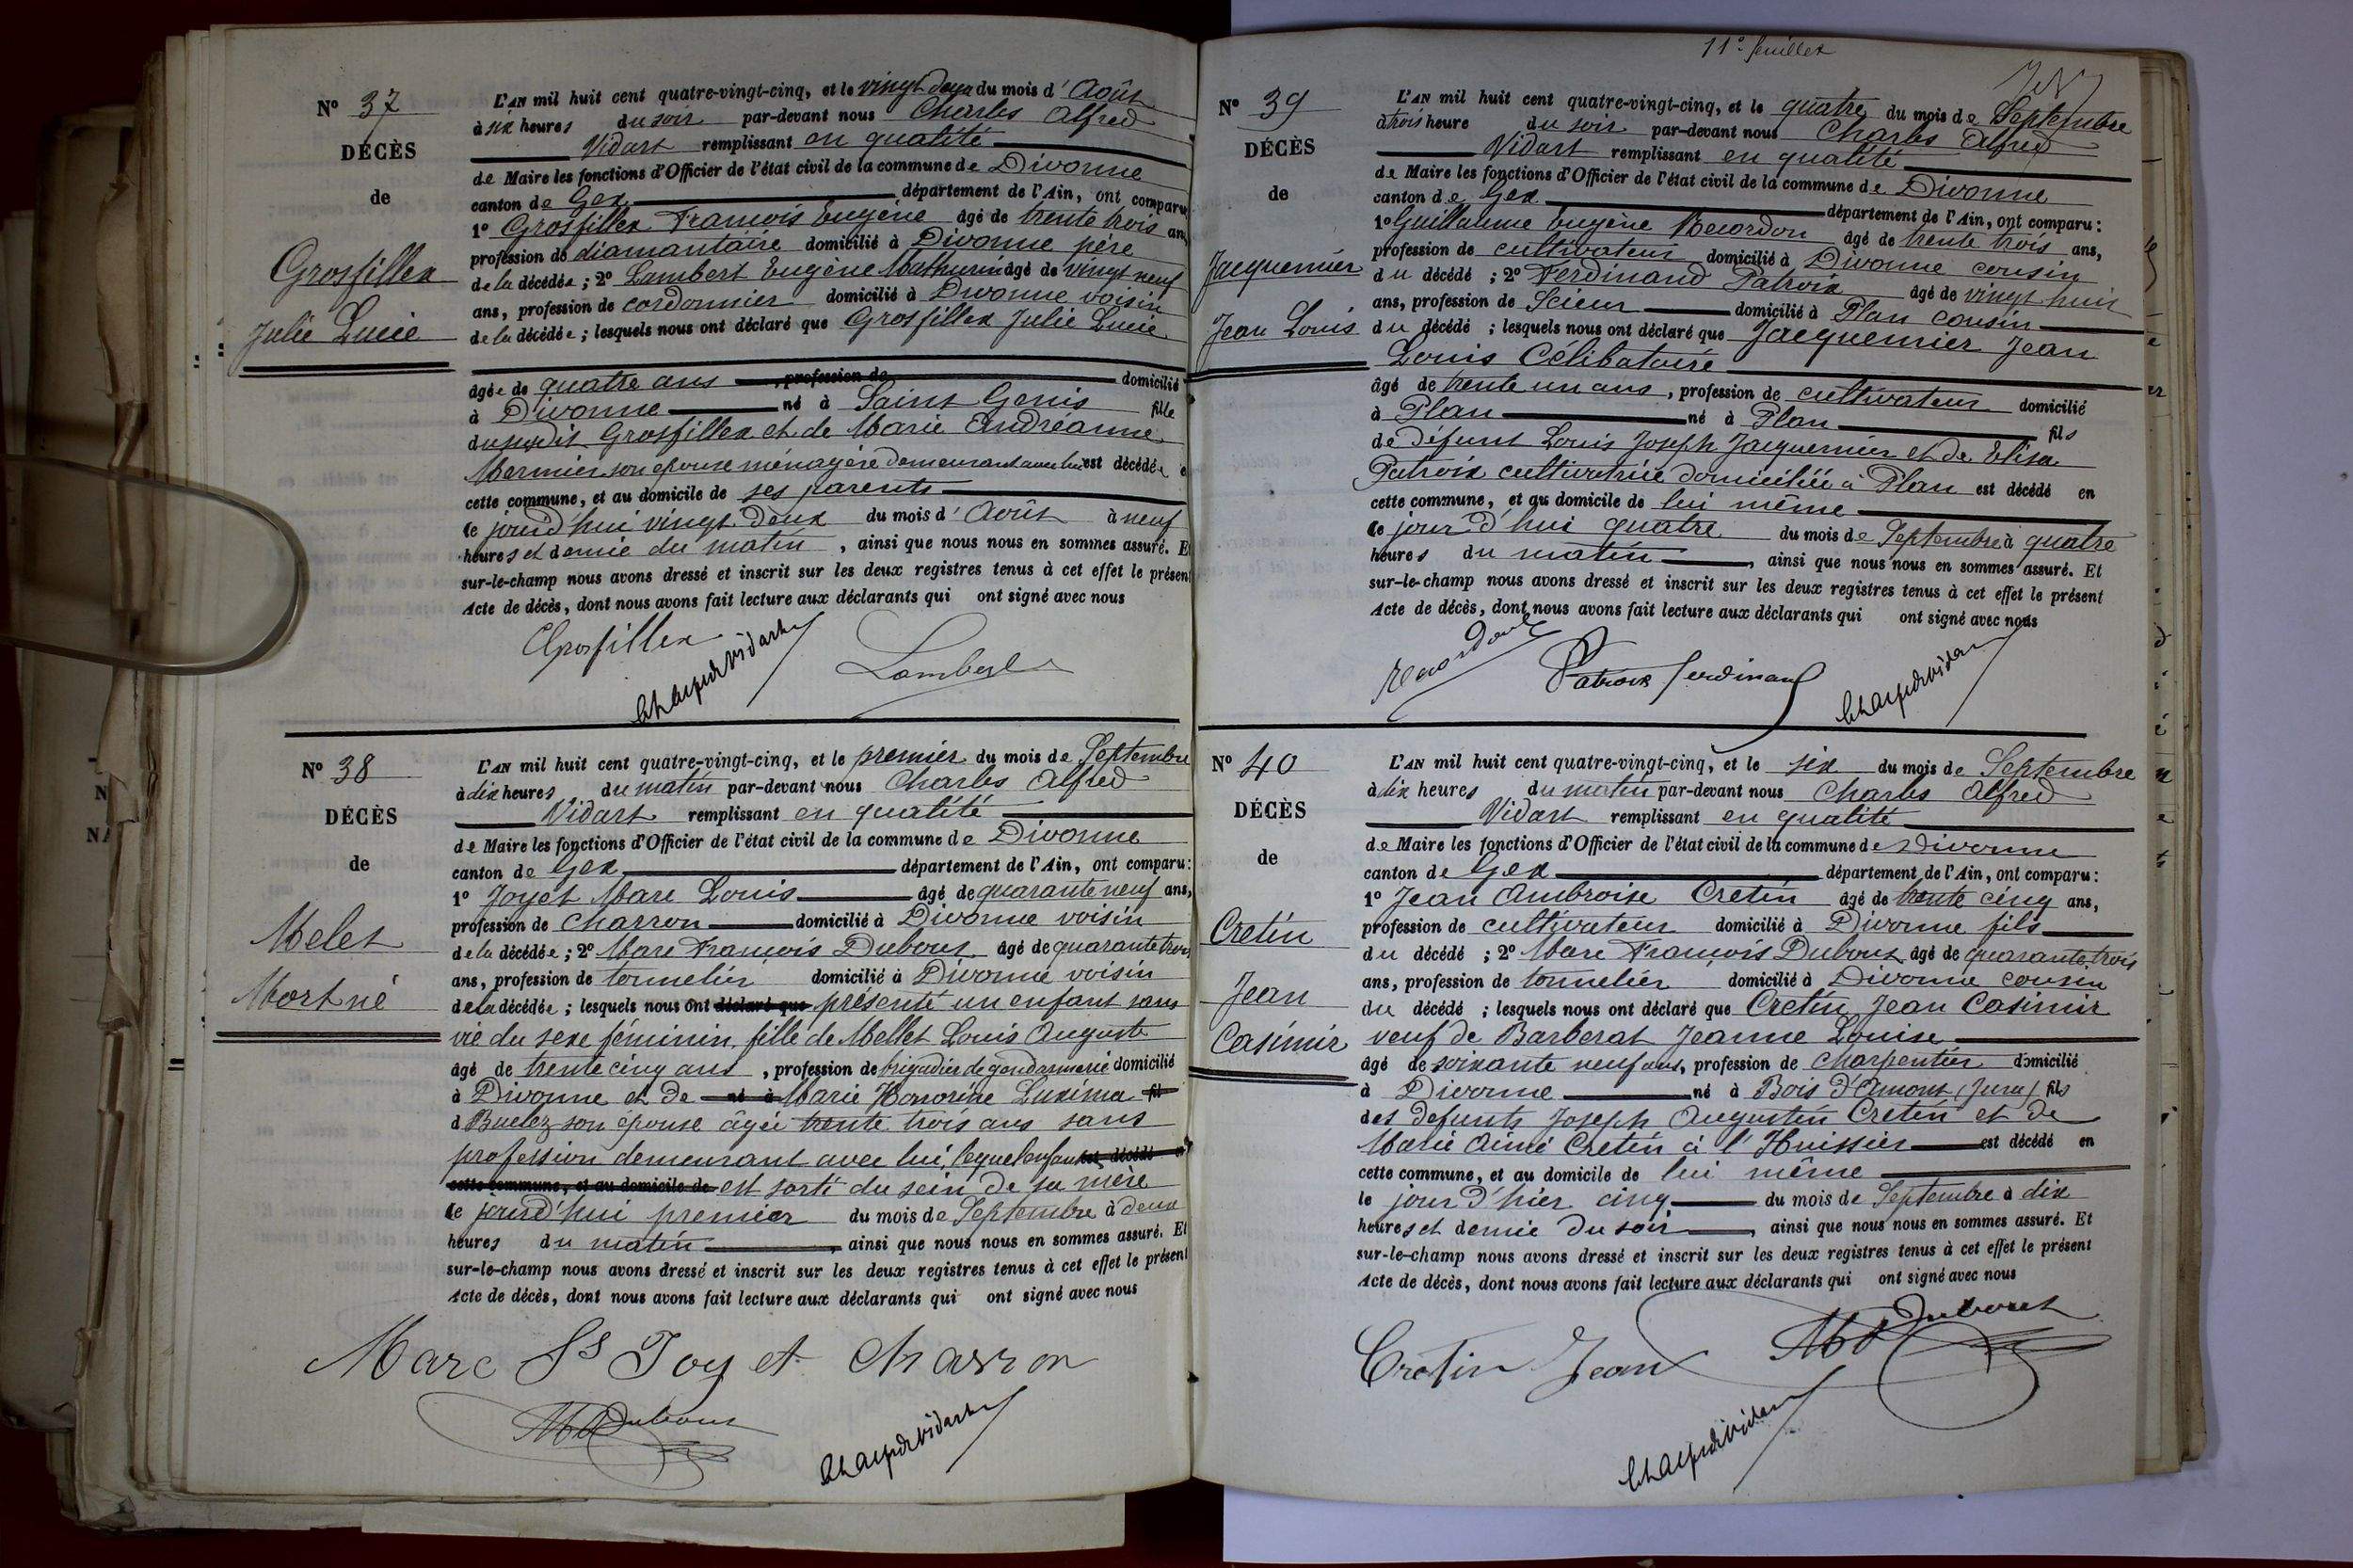 N° 37
DÉCÈS
de
Grosfillex
Julie Lucie
L'AN mil huit cent quatre-vingt-cinq, et le vingt deux du mois d'Août
à six heures du soir par-devant nous Charles Alfred
Vidart remplissant en qualité
de Maire les fonctions d'Officier de l'état civil de la commune de Divonne
canton de Gex département de l'Ain, ont comparu
1° Grosfillex François Eugène âgé de trente trois ans
profession de diamantaire domicilié à Divonne père
de la décédée ; 2° Lambert Eugène Mathurin âgé de vingt neuf
ans, profession de cordonnier domicilié à Divonne voisin
de la décédée ; lesquels nous ont déclaré que Grosfillex Julie Lucie
âgée de quatre ans , profession de domicilié
à Divonne né à Saint Genis fille
du susdit Grosfillex et de Marie Andréanne
Mermier son épouse ménagère demeurant avec lui est décédée e
cette commune, et au domicile de ses parents
le jourd'hui vingt deux du mois d'Août à neuf
heures et demie du matin , ainsi que nous nous en sommes assuré. Et
sur-le-champ nous avons dressé et inscrit sur les deux registres tenus à cet effet le présent
Acte de décès, dont nous avons fait lecture aux déclarants qui ont signé avec nous
Grosfillex
Lambert
N° 38
DÉCÈS
de
Melet
Mort né
L'AN mil huit cent quatre-vingt-cinq, et le premier du mois de Septembre
à dix heures du matin par-devant nous Charles Alfred
Vidart remplissant en qualité
de Maire les fonctions d'Officier de l'état civil de la commune de Divonne
canton de Gex département de l'Ain, ont comparu :
1° Joyet Marc Louis âgé de quarante neuf ans,
profession de charron domicilié à Divonne voisin
de la décédée ; 2° Marc François Dubout âgé de quarante trois
ans, profession de tonnelier domicilié à Divonne voisin
de la décédée ; lesquels nous ont déclaré que présenté un enfant sans
vie du sexe féminin, fille de Mellet Louis Auguste
âgé de trente cinq ans , profession de brigadier de gendarmerie domicilié
à Divonne et de né à Marie Honorine Luxima fil
d Buelez son épouse âgée trente trois ans sans
profession demeurant avec lui, lequel enfant est décédé en
cette commune, et au domicile de est sorti du sein de sa mère
le jourd'hui premier du mois de Septembre à deux
heures du matin , ainsi que nous nous en sommes assuré. Et
sur-le-champ nous avons dressé et inscrit sur les deux registres tenus à cet effet le présent
Acte de décès, dont nous avons fait lecture aux déclarants qui ont signé avec nous
Marc Ls Joyet charron
Dubout
11e feuillet
N° 39
DÉCÈS
de
Jacquemier
Jean Louis
L'AN mil huit cent quatre-vingt-cinq, et le quatre du mois de Septembre
à trois heure du soir par-devant nous Charles Alfred
Vidart remplissant en qualité
de Maire les fonctions d'Officier de l'état civil de la commune de Divonne
canton de Gex département de l'Ain, ont comparu :
1° Guillaume Eugène Recordon âgé de trente trois ans,
profession de cultivateur domicilié à Divonne cousin
du décédé ; 2° Ferdinand Patroix âgé de vingt huit
ans, profession de Scieur domicilié à Plan cousin
du décédé ; lesquels nous ont déclaré que Jacquemier Jean
Louis Célibataire
âgé de trente un ans , profession de cultivateur domicilié
à Plan né à Plan fils
de défunt Louis Joseph Jacquemier et de Elisa
Patroix cultivatrice domiciliée à Plan est décédé en
cette commune, et au domicile de lui même
le jour d'hui quatre du mois de Septembre à quatre
heures du matin , ainsi que nous nous en sommes assuré. Et
sur-le-champ nous avons dressé et inscrit sur les deux registres tenus à cet effet le présent
Acte de décès, dont nous avons fait lecture aux déclarants qui ont signé avec nous
Recordon
Patroix ferdinand
N° 40
DÉCÈS
de
Cretin
Jean
Casimir
L'AN mil huit cent quatre-vingt-cinq, et le six du mois de Septembre
à dix heures du matin par-devant nous Charles Alfred
Vidart remplissant en qualité
de Maire les fonctions d'Officier de l'état civil de la commune de Divonne
canton de Gex département de l'Ain, ont comparu :
1° Jean Ambroise Cretin âgé de trente cinq ans,
profession de cultivateur domicilié à Divonne fils
du décédé ; 2° Marc François Dubout âgé de quarante trois
ans, profession de tonnelier domicilié à Divonne cousin
du décédé ; lesquels nous ont déclaré que Cretin Jean Casimir
veuf de Barberat Jeanne Louise
âgé de soixante neuf ans, profession de charpentier domicilié
à Divonne né à Bois d'Amont (Jura) fils
des défunts Joseph Augustin Cretin et de
Marie Aimé Cretin à l'Huissier est décédé en
cette commune, et au domicile de lui même
le jour d'hier cinq du mois de Septembre à dix
heures et demie du soir , ainsi que nous nous en sommes assuré. Et
sur-le-champ nous avons dressé et inscrit sur les deux registres tenus à cet effet le présent
Acte de décès, dont nous avons fait lecture aux déclarants qui ont signé avec nous
Cretin Jean
Dubout